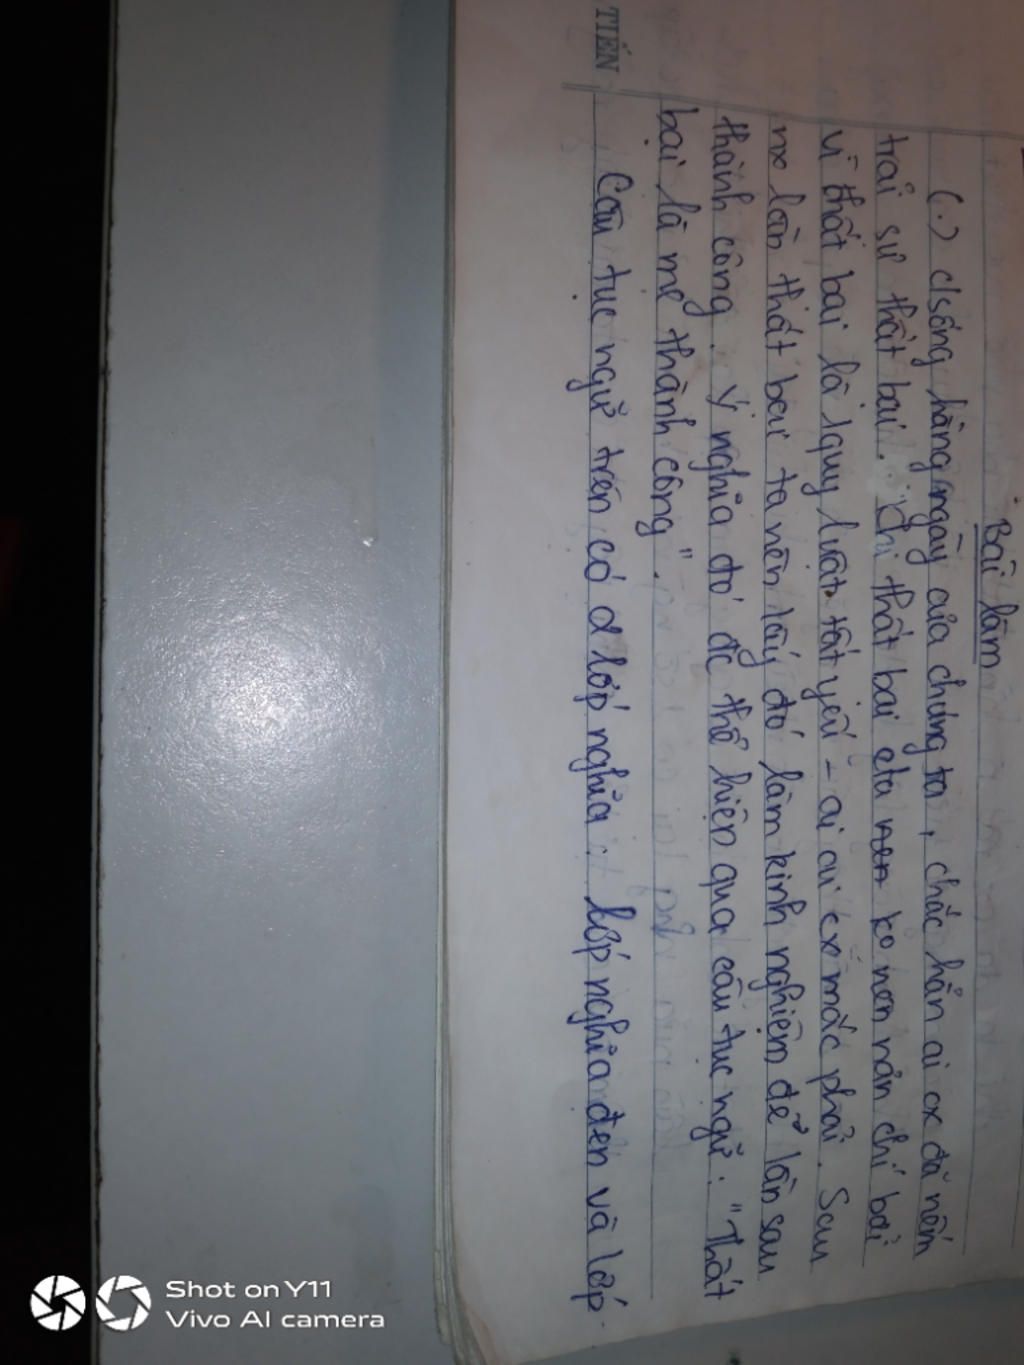 TIẾN
Bài làm
(.) c/sống hàng ngày của chúng ta, chắc hẳn ai cx đã nếm
trải sự thất bại. Khi thất bại cta ko nen nản chí bởi
vì thất bại là quy luật tất yếu - ai ai cx mắc phải. Sau
nx lần thất bại ta nên lấy đó làm kinh nghiệm để lần sau
thành công. Ý nghĩa đó đc thể hiện qua câu tục ngữ: "Thất
bại là mẹ thành công".
Câu tục ngữ trên có 2 lớp nghĩa: lớp nghĩa đen và lớp
Shot on Y11
Vivo AI camera